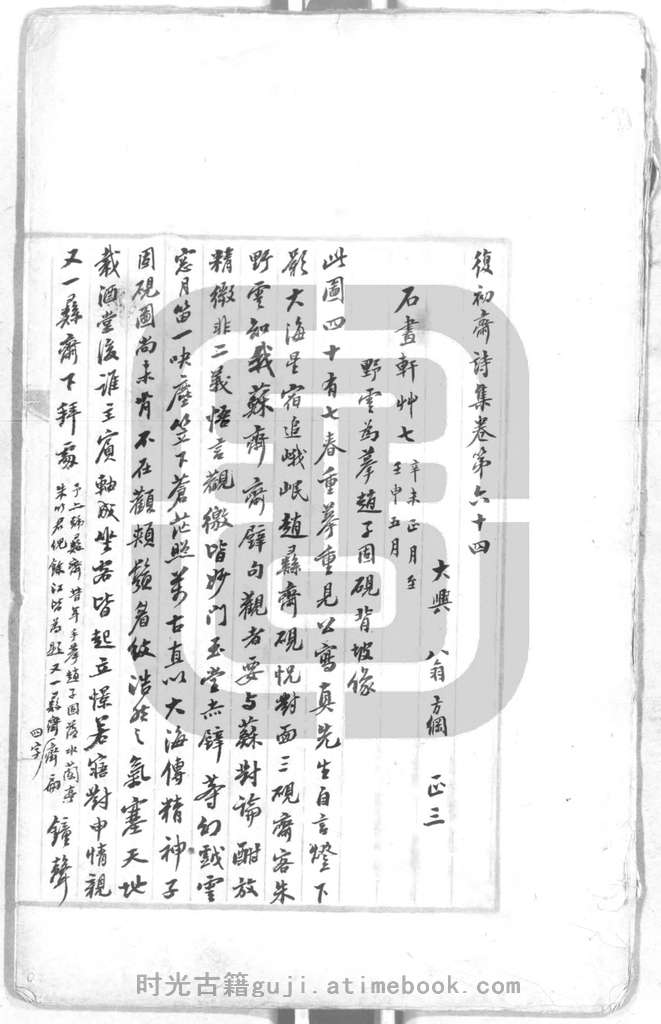 復初齋詩集卷第六十四
大興 翁方綱 正三
石畫軒艸七 辛未正月至
壬申五月
野雲為摹趙子固硯背坡像
此圖四十有七春重摹重見公寫真先生自言燈下
影大海星宿追峨岷趙彝齋硯怳對面三硯齋客朱
野雲知我蘇齋齋壁句觀者要与蘇對論酣放
精微非二義悟言觀徼皆妙門玉堂赤壁等幻戲雲
窓月笛一吷塵笠下蒼茫照万古直以大海傳精神子
固硯圖尚未肯不在顴頰鬚眉紋浩然之氣塞天地
載酒堂後誰主賓軸成坐客皆起立憬若寤對申情親
又一彝齋下拜處 予亦號彝齋昔年手摹趙子固落水蘭亭
朱竹君倪餘江皆為題又一彝齋齋扁
四字 鐘聲
时光古籍guji.atimebook.com